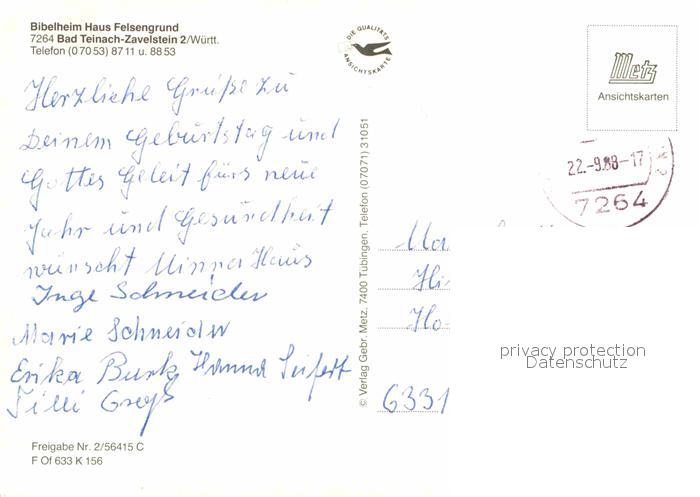 Bibelheim Haus Felsengrund
7264 Bad Teinach-Zavelstein 2/Württ.
Telefon (0 70 53) 87 11 u. 88 53
DIE QUALITÄTS
ANSICHTSKARTE
Metz
Ansichtskarten
22.-9.88-17
7264
Herzliche Grüße zu
Deinem Geburtstag und
Gottes Geleit fürs neue
Jahr und Gesundheit
wünscht Minna Haus
Inge Schneider
Marie Schneider
Erika Burk Hanna Seifert
Tilli Groß
© Verlag Gebr. Metz, 7400 Tübingen, Telefon (0 70 71) 3 10 51
Ma
Hi
Ho
6331
privacy protection
Datenschutz
Freigabe Nr. 2/56415 C
F Of 633 K 156